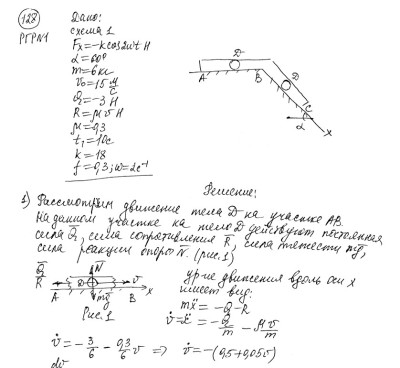 128
РГР№1
Дано:
схема 1
Fx=-k cos2ωt H
α=60°
m=6 кг
v₀=15 м/с
Q=-3 H
R=μv H
μ=0,3
t₁=10c
k=18
f=0,3; ω=2c⁻¹
A
D
B
D
C
α
x
Решение:
1) Рассмотрим движение тела D на участке AB.
На данном участке на тело D действуют постоянная
сила Q̅, сила сопротивления R̅, сила тяжести mg̅,
сила реакции опоры N̅. (рис.1)
Q̅
R̅
N̅
D
v̅
A
mg̅
B
x
Рис. 1
ур-ие движения вдоль оси x
имеет вид:
mẍ = -Q-R
v̇=ẍ = -Q/m - μv/m
v̇ = -3/6 - 0,3/6 v => v̇ = -(0,5+0,05v)
dv